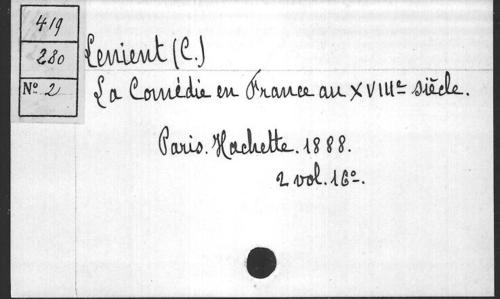 419
280
Nº 2
Lenient (C.)
La Comédie en France au XVIIIe siècle.
Paris. Hachette. 1888.
2 vol. 16º.